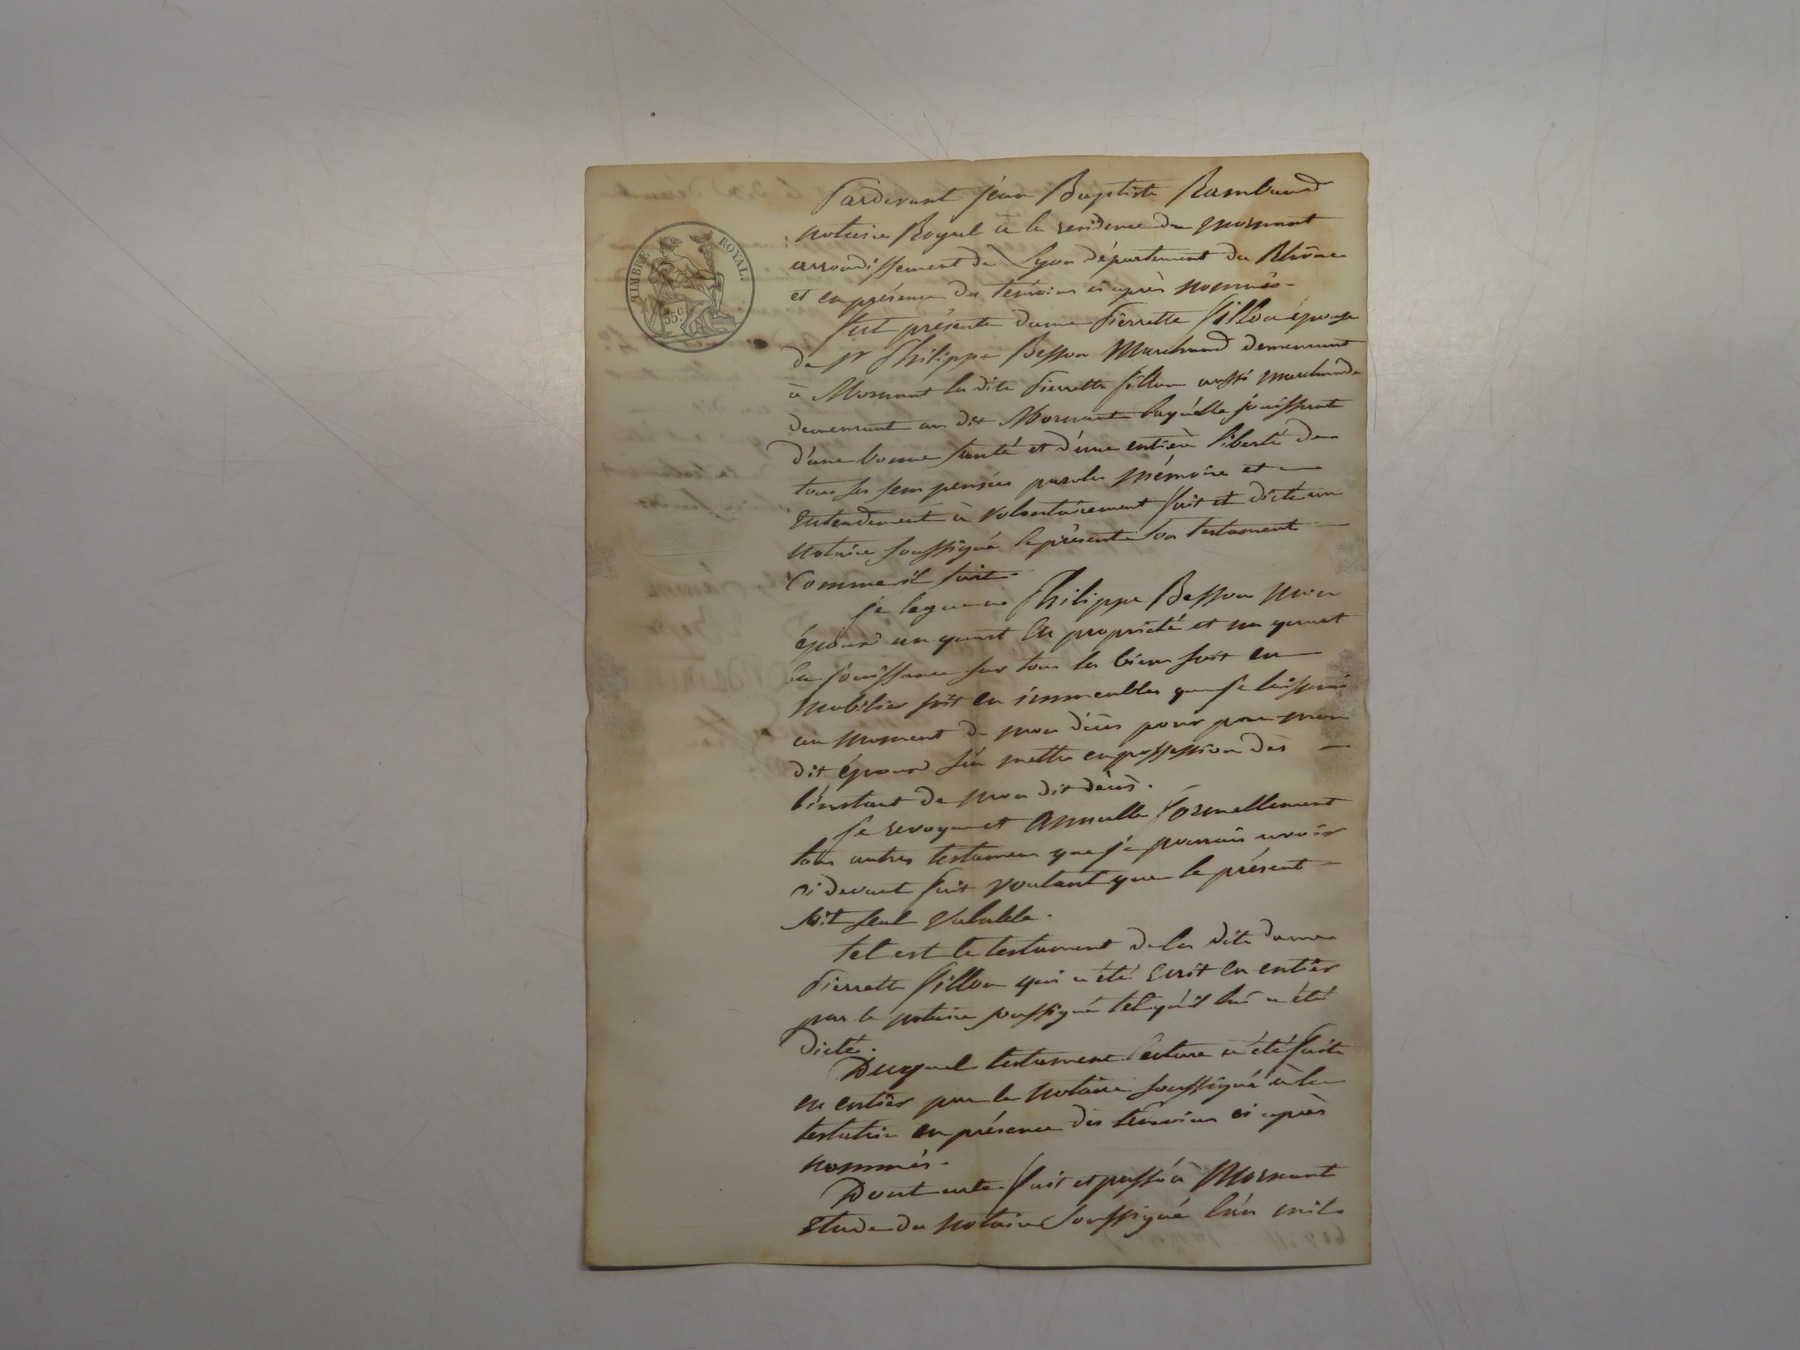 TIMBRE ROYAL.
35 c.
Pardevant Jean Baptiste Rambaud
notaire Royal à la residence de Mornant
arrondissement de Lyon département du Rhône
et en présence des temoins ci après nommés -
fut présente dame Pierrette fillon épouse
de sr Philippe Besson Marchand demeurant
à Mornant la dite Pierrette fillon aussi marchande
demeurant au dit Mornant laquelle jouissant
d'une bonne santé et d'une entière liberté de
tous ses sens pensées paroles mémoire et
Entendement a volontairement fait et dicté au
notaire soussigné le présent son testament
Comme il suit.
je legue a Philippe Besson mon
époux un quart en propriété et un quart
en jouissance sur tous les biens soit en
mobilier soit en immeubles que je laisserai
au moment de mon décès pour par mon
dit époux s'en mettre en possession dès
l'instant de mon dit décès.
je revoque et Annulle formellement
tous autres testamens que je pourrais avoir
ci devant fait voulant que le présent
soit seul valable.
tel est le testament de la dite dame
Pierrette fillon qui a été Ecrit en entier
par le notaire soussigné tel qu'il lui a été
dicté.
Duquel testament lecture a été faite
en entier par le notaire soussigné à la
testatrice en présence des témoins ci après
nommés.
Dont acte fait et passé à Mornant
Etude du notaire soussigné l'an mil